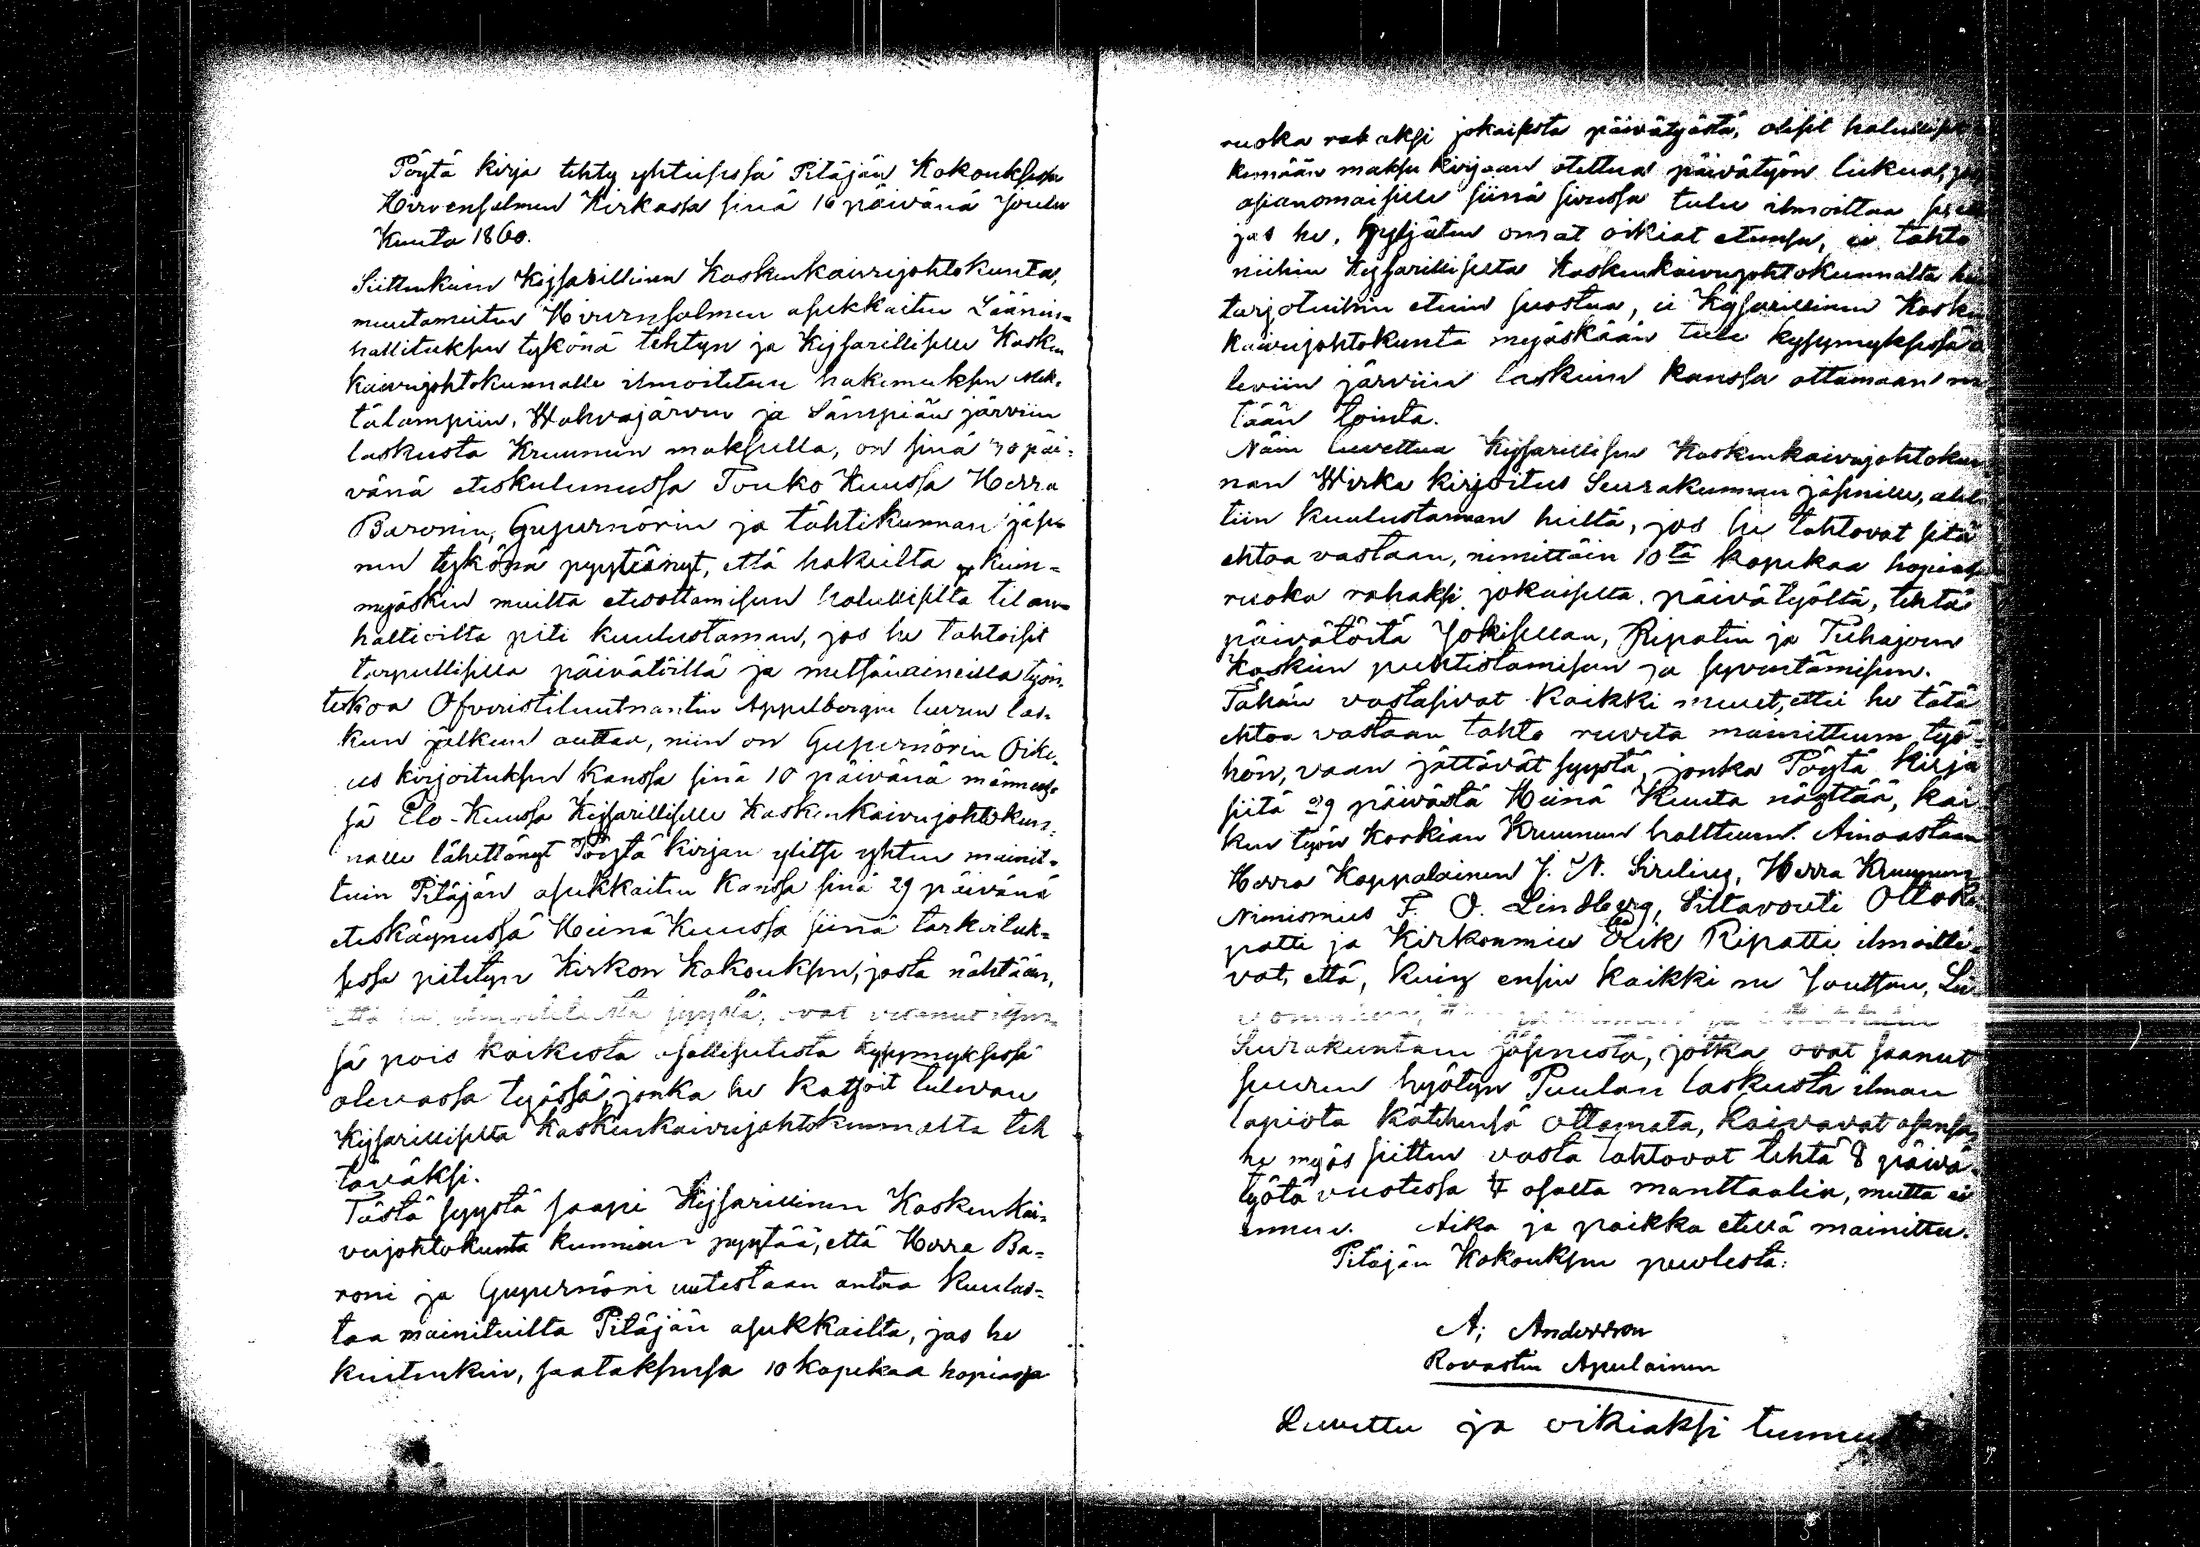 Pöytä kirja tehty yhteisessä Pitäjän Kokouksessa
Hirvensalmen Kirkossa sinä 16 päivänä Joulu
Kuuta 1860.
Sittenkuin Kejsarillinen Koskenkaivujohtokunta,
muutamitten Hirvensalmen asukkaitten Läänin=
hallituksen tykönä tehtyn ja Kejsarilliselle Kosken
kaivujohtokunnalle ilmoitetun hakemuksen
tälampiin, Wahvajärven ja Sämpiän järviin
laskusta Kruunun maksulla, on sinä 30 päi=
vänä eteskulunessa Touko Kuussa Herra
Baronin, Gupernörin ja tähtikunnan jäse=
nen tykönä pyytänyt, että hakeilta kuin=
myöskin muilta etesottamiseen halullisilta tilan=
haltioilta piti kuulustaman, jos he tahtoisit
tarpellisilla päivätöillä ja metsänaineilla työn=
tekoa Öfverstilöutnantin Appelbergin luvun las=
kun jälkeen auttaa, niin on Gupernörin Oike=
us kirjoituksen kanssa sinä 10 päivänä männees=
sä Elo-Kuussa Kejsarilliselle Koskenkaivujohtokun=
nalle lähettänyt Pöytä kirjan ylitse yhten mainit=
tuin Pitäjän asukkaitten kanssa sinä 29 päivänä
eteskäynessä Heinä Kuussa siinä tarkoituk=
sessa pitetyn Kirkon Kokouksen, josta nähtään,
että he, syystä, ovat vetänut itsen=
sä pois kaikesta osallisutesta kysymyksessä
olevassa työssä, jonka he katsoit tulevan
Kejsarilliselta Koskenkaivujohtokunnalta teh
täväksi.
Tästä syystä saapi Kejsarillinen Koskenkai=
vujohtokunta kunnian pyytää, että Herra Ba=
roni ja Gupernöri uutestaan antaa kuulus=
taa mainituilta Pitäjän asukkailta, jos he
kuitenkin, saataksensa 10 kopekaa hopiassa
ruoka rahaksi jokaisesta päivätyöstä, olisit halulliset
kemään maksu kirjaan otettua päivätyön lukua,
asianomaisille siinä sivussa tulee ilmoittaa,
jos he, hyljäten omat oikiat etunsa, ei tahto
niihin Kejsarilliselta Koskenkaivujohtokunnalta
tarjotuihin etuin suostua, ei Kejsarillinen Kosken
kaivujohtokunta myöskään tule kysymyksessä o
leviin järviin laskuin kanssa ottamaan mi
tään tointa.
Näin luvettua Kejsarillisen Koskenkaivujohtokun
nan Wirka kirjoitus Seurakunnan jäsenille,
tiin kuulustaman heiltä, jos he tahtovat sitä
ehtoa vastaan, nimittäin 10tä kopekaa hopiassa
ruoka rahaksi jokaiselta päivätyöltä, tehtä
päivätöitä Jokisillan, Ripatin ja Tuhajoen
Koskien puhtistamiseen ja syventämiseen.
Tähän vastasivat kaikki muut, ettei he tätä
ehtoa vastaan tahto ruveta mainittuun työ=
hön, vaan jättävät syystä, jonka Pöytä Kirja
siitä 29 päivästä Heinä Kuuta näyttää, kai
ken työn Korkian Kruunun halttuun. Ainoastaan
Herra Kappalainen J. N. Sirelius, Herra Kruunun
Nimismies F. O. Lindberg, Siltavouti Otto Ri=
patti ja Kirkonmies Erik Ripatti ilmoitti=
vat, että, kuin ensin kaikki ne Joutsan, Lei
Seurakuntain jäsenistä, jotka ovat saanut
suuren hyötyn Puulan laskusta ilman
lapiota kätehensä ottamata, kaivavat osansa
he myös sitten vasta tahtovat tehtä 8 päivä=
työtä vuotessa ¼ osalta manttaalia, mutta ei
ennen. Aika ja paikka etellä mainittu.
Pitäjän Kokouksen puolesta:
A; Andersson
Rovastin Apulainen
Luvettu ja oikiaksi